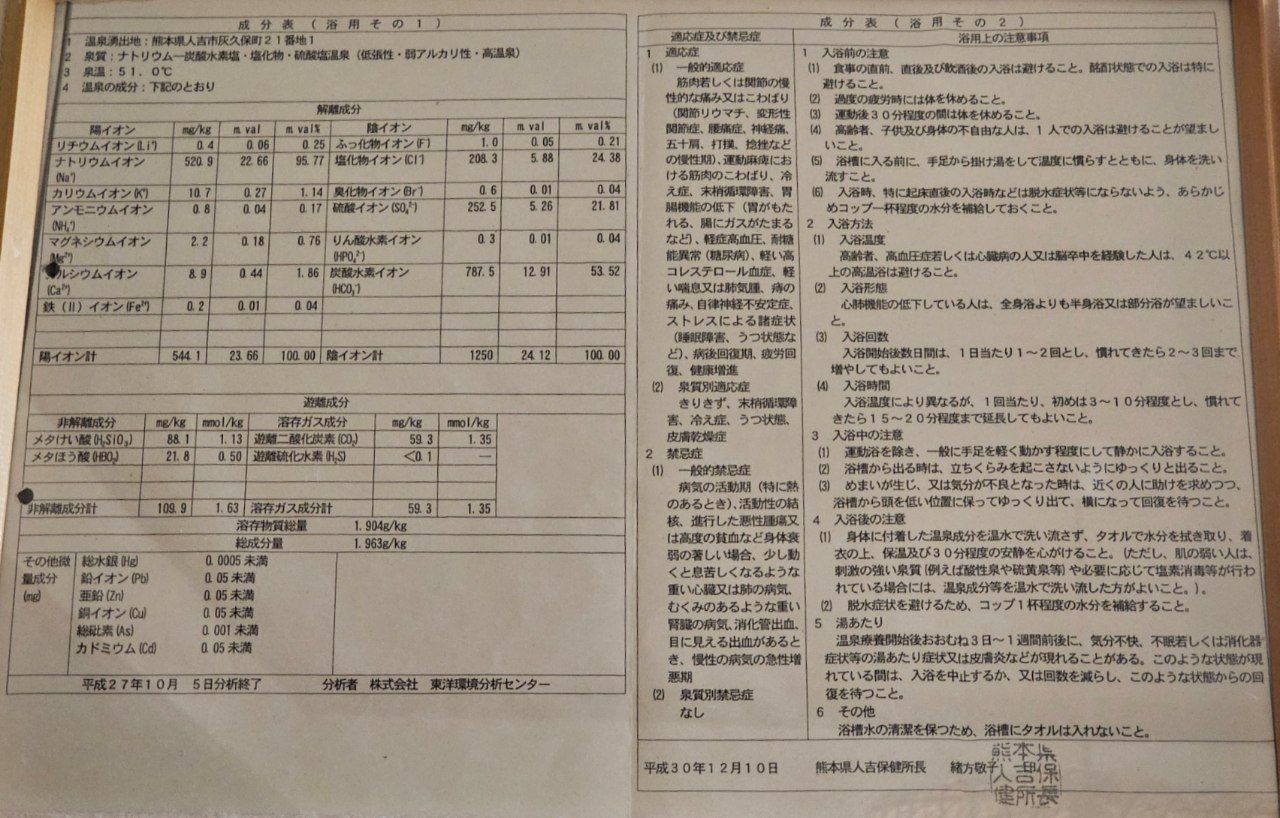 成分表（浴用その１）
1 温泉湧出地：熊本県人吉市灰久保町２１番地１
2 泉質：ナトリウム－炭酸水素塩・塩化物・硫酸塩温泉（低張性・弱アルカリ性・高温泉）
3 泉温：５１．０℃
4 温泉の成分：下記のとおり
解離成分
陽イオン mg/kg m.val m.val% 陰イオン mg/kg m.val m.val%
リチウムイオン(Li⁺) 0.4 0.06 0.25 ふっ化物イオン(F⁻) 1.0 0.05 0.21
ナトリウムイオン 520.9 22.66 95.77 塩化物イオン(Cl⁻) 208.3 5.88 24.38
(Na⁺)
カリウムイオン(K⁺) 10.7 0.27 1.14 臭化物イオン(Br⁻) 0.6 0.01 0.04
アンモニウムイオン 0.8 0.04 0.17 硫酸イオン(SO₄²⁻) 252.5 5.26 21.81
(NH₄⁺)
マグネシウムイオン 2.2 0.18 0.76 りん酸水素イオン 0.3 0.01 0.04
(Mg²⁺) (HPO₄²⁻)
ルシウムイオン 8.9 0.44 1.86 炭酸水素イオン 787.5 12.91 53.52
(Ca²⁺) (HCO₃⁻)
鉄（II）イオン(Fe²⁺) 0.2 0.01 0.04
陽イオン計 544.1 23.66 100.00 陰イオン計 1250 24.12 100.00
遊離成分
非解離成分 mg/kg mmol/kg 溶存ガス成分 mg/kg mmol/kg
メタけい酸(H₂SiO₃) 88.1 1.13 遊離二酸化炭素(CO₂) 59.3 1.35
メタほう酸(HBO₂) 21.8 0.50 遊離硫化水素(H₂S) <0.1 ―
非解離成分計 109.9 1.63 溶存ガス成分計 59.3 1.35
溶存物質総量 1.904g/kg
総成分量 1.963g/kg
その他微 総水銀(Hg) 0.0005未満
量成分 鉛イオン(Pb) 0.05未満
(mg) 亜鉛(Zn) 0.05未満
銅イオン(Cu) 0.05未満
総砒素(As) 0.001未満
カドミウム(Cd) 0.05未満
平成２７年１０月 ５日分析終了 分析者 株式会社 東洋環境分析センター
成分表（浴用その２）
適応症及び禁忌症
1 適応症
(1) 一般的適応症
筋肉若しくは関節の慢
性的な痛み又はこわばり
（関節リウマチ、変形性
関節症、腰痛症、神経痛、
五十肩、打撲、捻挫など
の慢性期）、運動麻痺にお
ける筋肉のこわばり、冷
え症、末梢循環障害、胃
腸機能の低下（胃がもた
れる、腸にガスがたまる
など）、軽症高血圧、耐糖
能異常（糖尿病）、軽い高
コレステロール血症、軽
い喘息又は肺気腫、痔の
痛み、自律神経不安定症、
ストレスによる諸症状
（睡眠障害、うつ状態な
ど）、病後回復期、疲労回
復、健康増進
(2) 泉質別適応症
きりきず、末梢循環障
害、冷え症、うつ状態、
皮膚乾燥症
2 禁忌症
(1) 一般的禁忌症
病気の活動期（特に熱
のあるとき）、活動性の結
核、進行した悪性腫瘍又
は高度の貧血など身体衰
弱の著しい場合、少し動
くと息苦しくなるような
重い心臓又は肺の病気、
むくみのあるような重い
腎臓の病気、消化管出血、
目に見える出血があると
き、慢性の病気の急性増
悪期
(2) 泉質別禁忌症
なし
浴用上の注意事項
1 入浴前の注意
(1) 食事の直前、直後及び飲酒後の入浴は避けること。酩酊状態での入浴は特に
避けること。
(2) 過度の疲労時には体を休めること。
(3) 運動後３０分程度の間は体を休めること。
(4) 高齢者、子供及び身体の不自由な人は、１人での入浴は避けることが望まし
いこと。
(5) 浴槽に入る前に、手足から掛け湯をして温度に慣らすとともに、身体を洗い
流すこと。
(6) 入浴時、特に起床直後の入浴時などは脱水症状等にならないよう、あらかじ
めコップ一杯程度の水分を補給しておくこと。
2 入浴方法
(1) 入浴温度
高齢者、高血圧症若しくは心臓病の人又は脳卒中を経験した人は、４２℃以
上の高温浴は避けること。
(2) 入浴形態
心肺機能の低下している人は、全身浴よりも半身浴又は部分浴が望ましいこ
と。
(3) 入浴回数
入浴開始後数日間は、１日当たり１～２回とし、慣れてきたら２～３回まで
増やしてもよいこと。
(4) 入浴時間
入浴温度により異なるが、１回当たり、初めは３～１０分程度とし、慣れて
きたら１５～２０分程度まで延長してもよいこと。
3 入浴中の注意
(1) 運動浴を除き、一般に手足を軽く動かす程度にして静かに入浴すること。
(2) 浴槽から出る時は、立ちくらみを起こさないようにゆっくりと出ること。
(3) めまいが生じ、又は気分が不良となった時は、近くの人に助けを求めつつ、
浴槽から頭を低い位置に保ってゆっくり出て、横になって回復を待つこと。
4 入浴後の注意
(1) 身体に付着した温泉成分を温水で洗い流さず、タオルで水分を拭き取り、着
衣の上、保温及び３０分程度の安静を心がけること。（ただし、肌の弱い人は、
刺激の強い泉質（例えば酸性泉や硫黄泉等）や必要に応じて塩素消毒等が行わ
れている場合には、温泉成分等を温水で洗い流した方がよいこと。）。
(2) 脱水症状を避けるため、コップ１杯程度の水分を補給すること。
5 湯あたり
温泉療養開始後おおむね３日～１週間前後に、気分不快、不眠若しくは消化器
症状等の湯あたり症状又は皮膚炎などが現れることがある。このような状態が現
れている間は、入浴を中止するか、又は回数を減らし、このような状態からの回
復を待つこと。
6 その他
浴槽水の清潔を保つため、浴槽にタオルは入れないこと。
平成３０年１２月１０日 熊本県人吉保健所長 緒方敬子
熊本県
人吉保
健所長